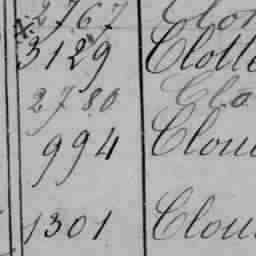 2767 Clo
3129 Clott
2780 Clo
994 Clou
1301 Clou